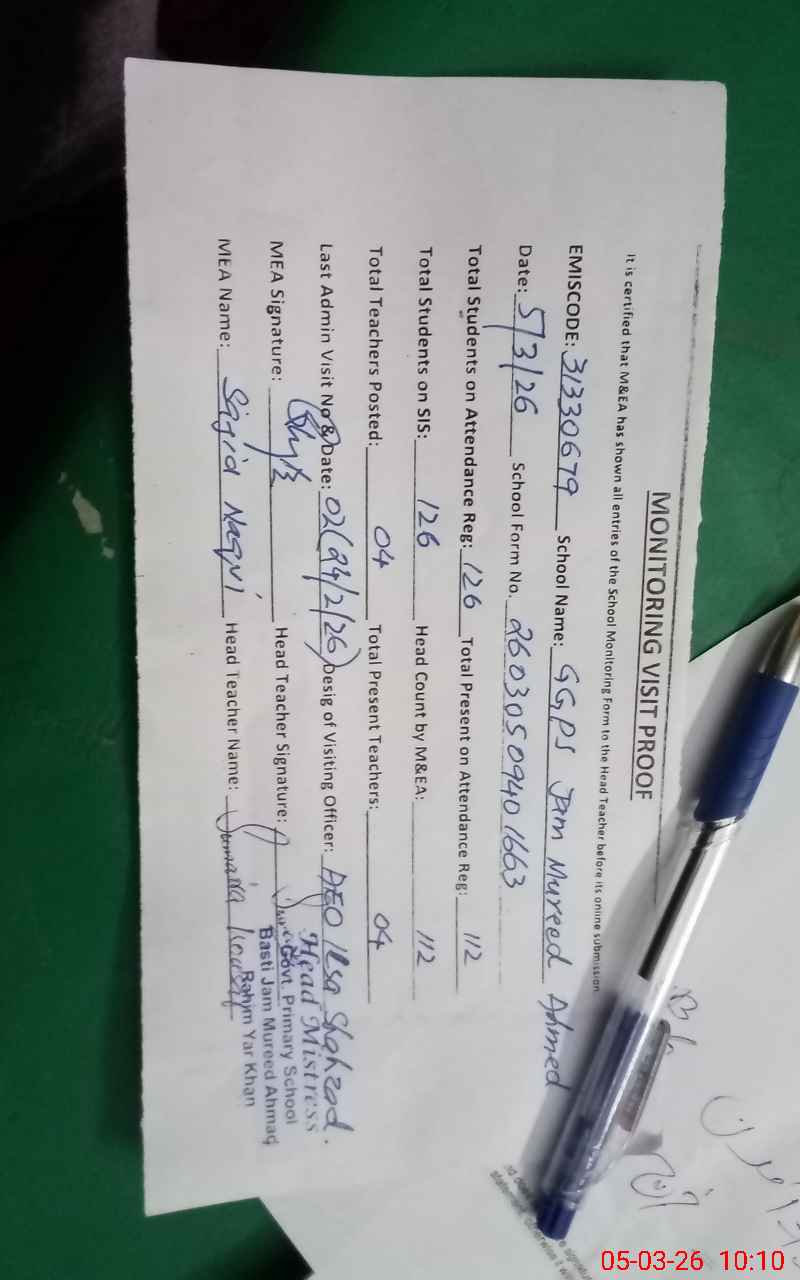 MONITORING VISIT PROOF
It is certified that M&EA has shown all entries of the School Monitoring Form to the Head Teacher before its online submission
EMISCODE: 31330679 School Name: GGPS Jam Mureed Ahmed
Date: 5/3/26 School Form No. 26030509401663
Total Students on Attendance Reg: 126 Total Present on Attendance Reg: 112
Total Students on SIS: 126 Head Count by M&EA: 112
Total Teachers Posted: 04 Total Present Teachers: 04
Last Admin Visit No & Date: 02(24/2/26) Desig of Visiting Officer: AEO Ilsa Shahzad.
MEA Signature: Head Teacher Signature:
MEA Name: Sajid Naqvi Head Teacher Name: Sumaira Kousar
Head Mistress
Govt. Primary School
Basti Jam Mureed Ahmad
Rahim Yar Khan
05-03-26 10:10